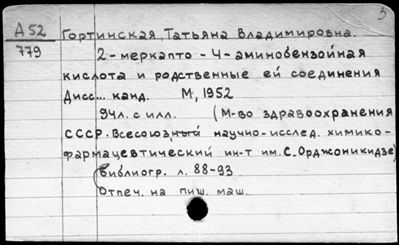 5
А 52
779
Гортинская, Татьяна Владимировна.
2-меркапто-4-аминобензойная
кислота и родственные ей соединения
Дисс... канд. М, 1952
94л. с илл. (М-во здравоохранения
СССР. Всесоюзный научно-исслед. химико-
фармацевтический ин-т им. С. Орджоникидзе)
Библиогр. л. 88-93
Отпеч. на пиш. маш.